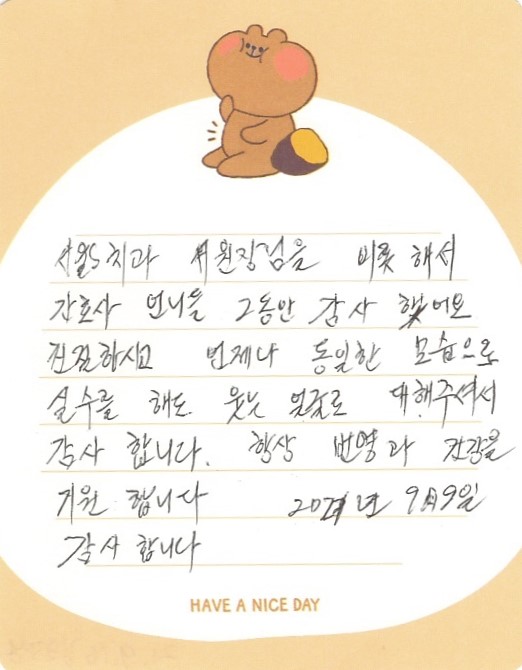 치과 원장님을 비롯 해서
간호사 언니들 그동안 감사 했어요
친절하시고 언제나 동일한 모습으로
실수를 해도 웃는 얼굴로 대해주셔서
감사 합니다. 항상 번영과 건강을
기원 합니다 년 9월9일
감사 합니다
HAVE A NICE DAY